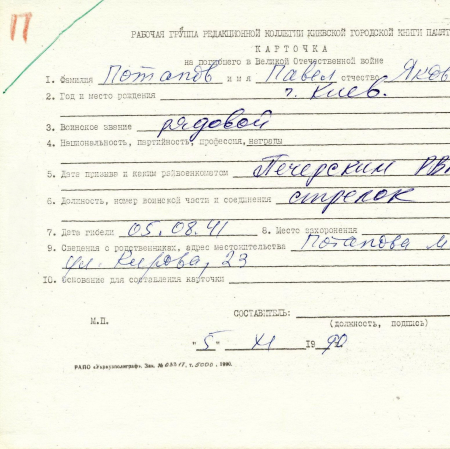 П
РАБОЧАЯ ГРУППА РЕДАКЦИОННОЙ КОЛЛЕГИИ КИЕВСКОЙ ГОРОДСКОЙ КНИГИ ПАМЯТ
КАРТОЧКА
на погибшего в Великой Отечественной войне
1. Фамилия Потапов имя Павел отчество Яков
2. Год и место рождения г. Киев.
3. Воинское звание рядовой
4. Национальность, партийность, профессия, награды
5. Дата призыва и каким райвоенкоматом Печерским РВК
6. Должность, номер воинской части и соединения стрелок
7. Дата гибели 05.08.41 8. Место захоронения
9. Сведения о родственниках, адрес местожительства Потапова М
ул. Кирова, 23
10. Основание для составления карточки
СОСТАВИТЕЛЬ:
М.П. (должность, подпись)
"5" XI 1990
РАПО «Укрвузполиграф». Зак. № т. 5000, 1990.